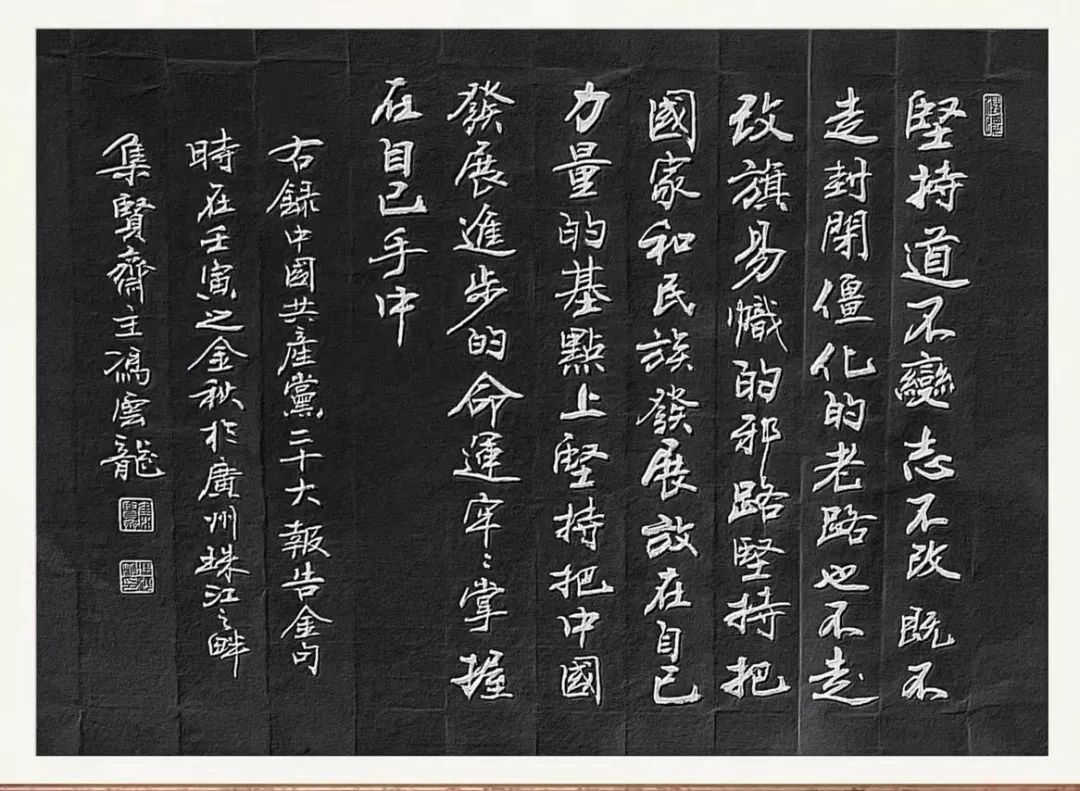 堅持道不變志不改既不
走封閉僵化的老路也不走
改旗易幟的邪路堅持把
國家和民族發展放在自己
力量的基點上堅持把中國
發展進步的命運牢〻掌握
在自己手中
右錄中國共產黨二十大報告金句
時在壬寅之金秋於廣州珠江之畔
集賢齋主馮雲龍